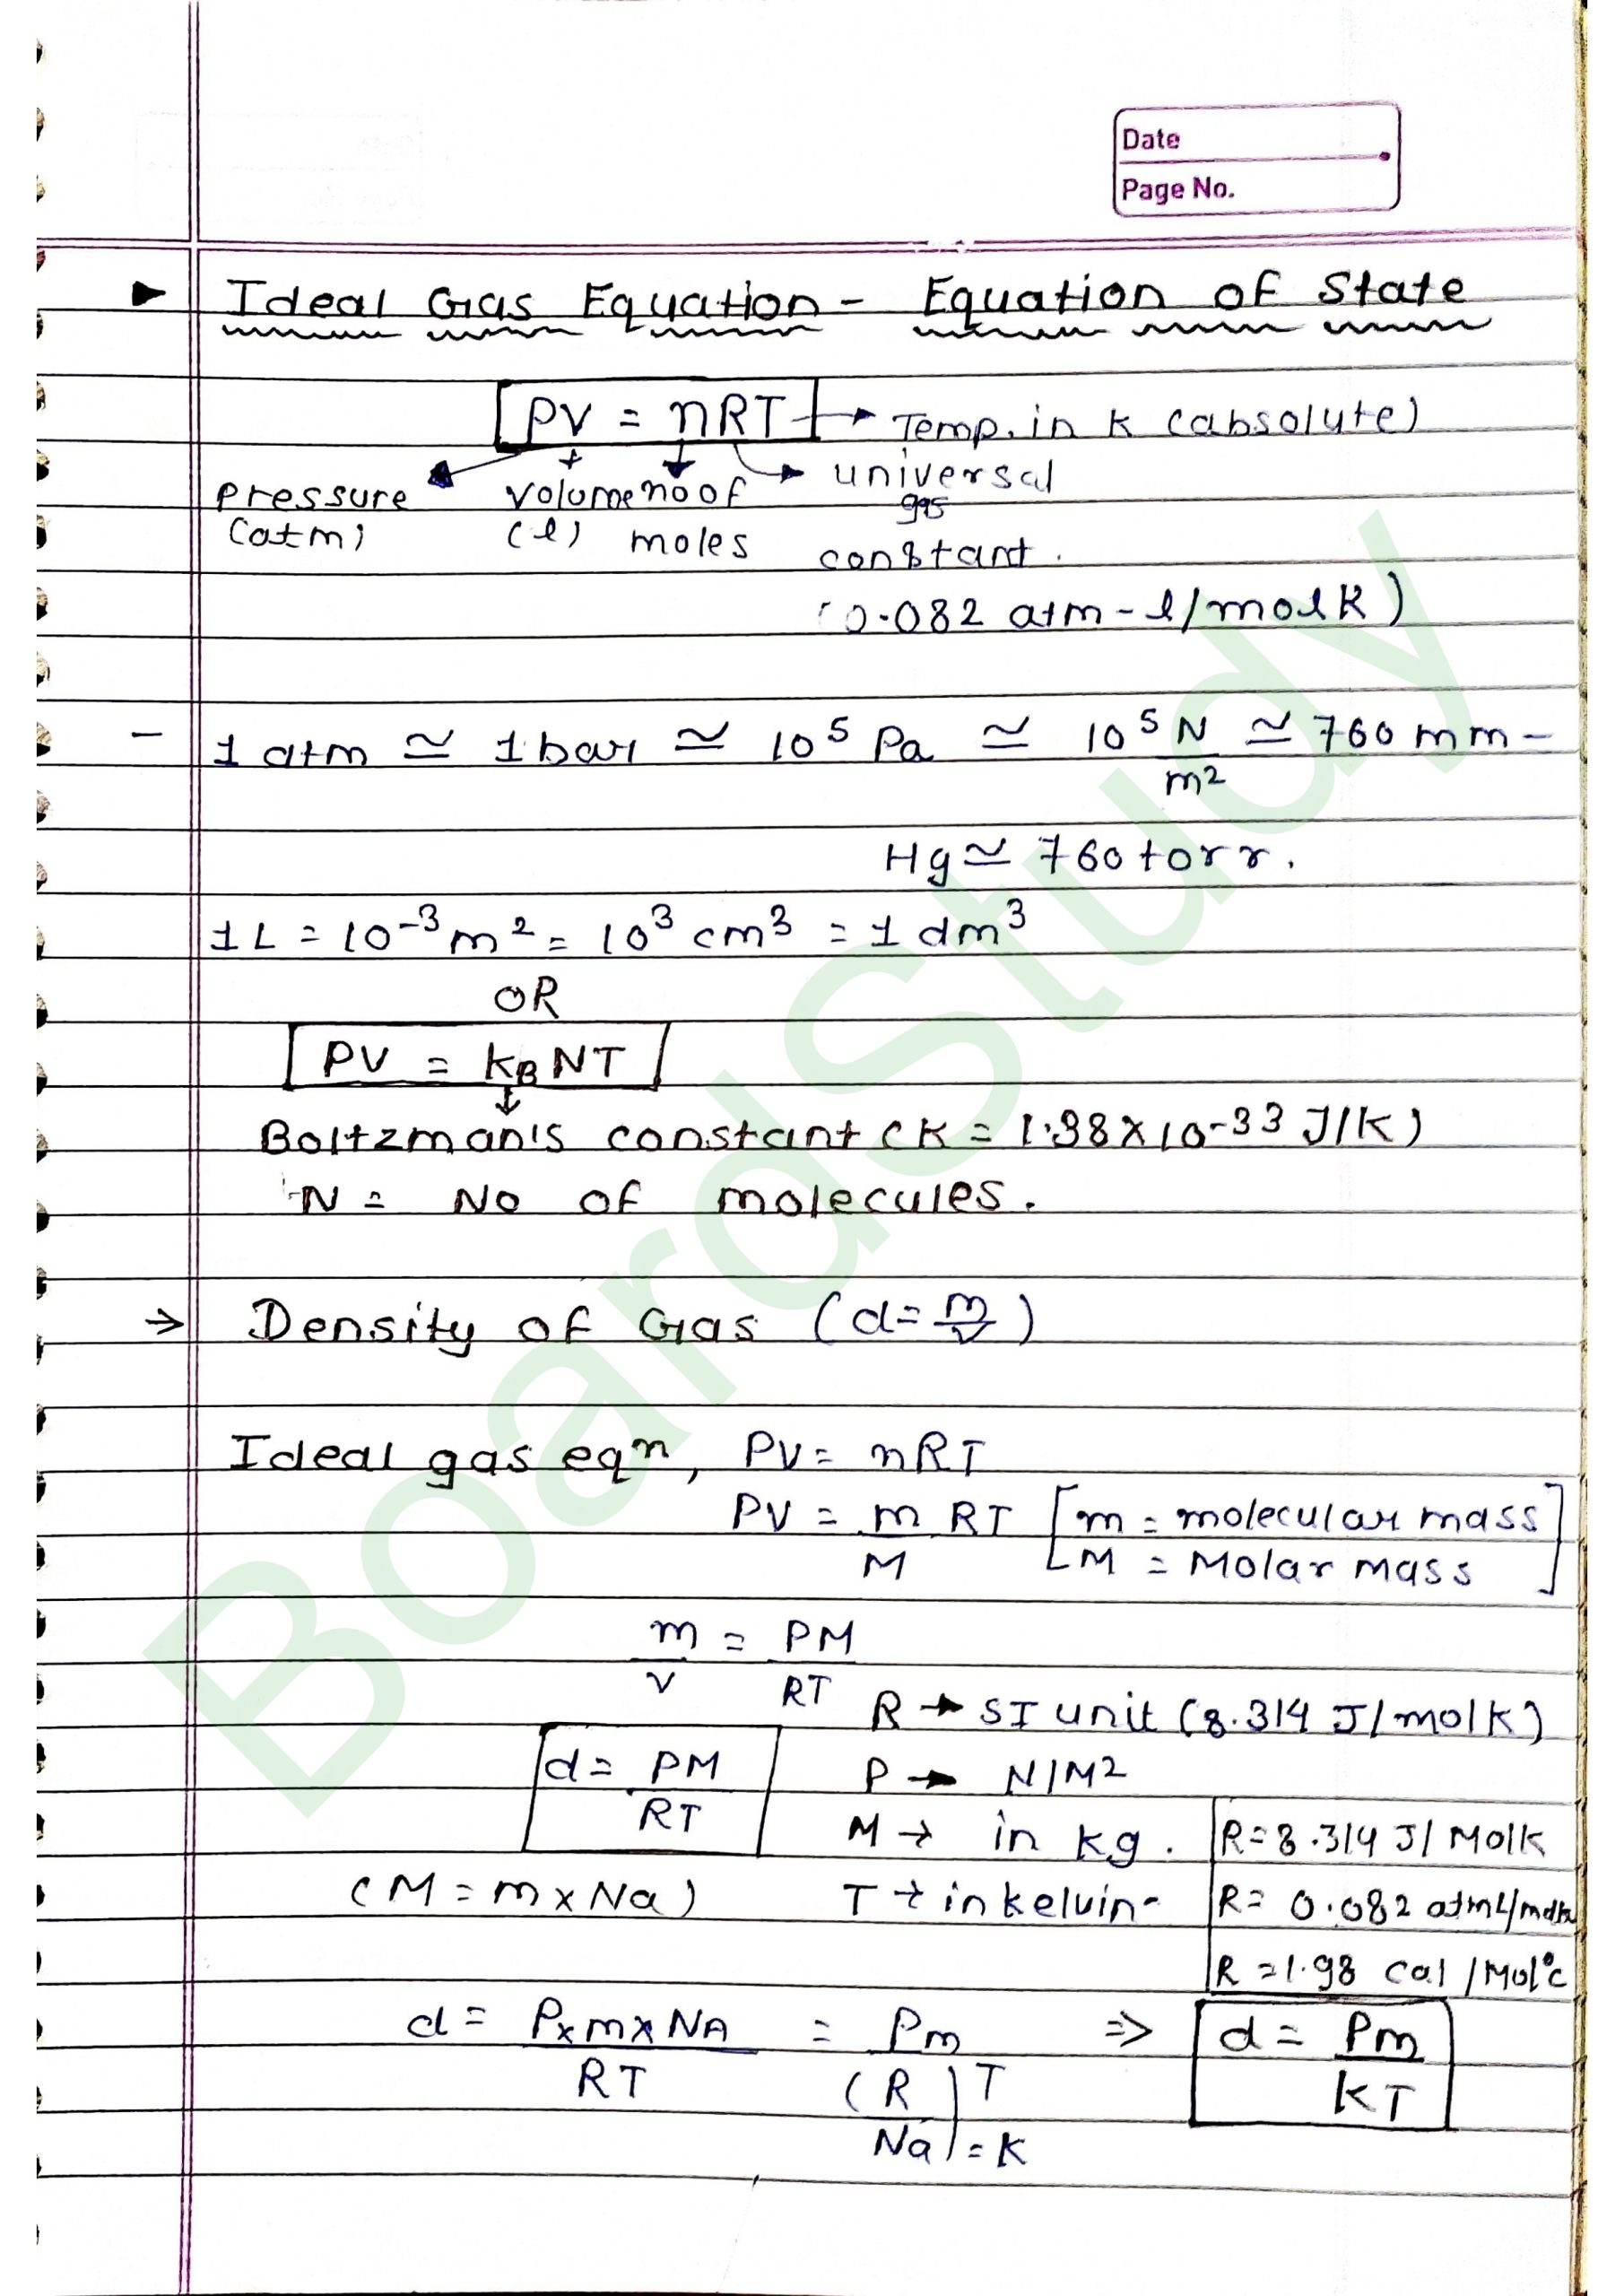 Date
Page No.
Ideal Gas Equation - Equation of State
PV = nRT → Temp. in K (absolute)
pressure volume no of universal
(atm) (l) moles gas
constant.
(0.082 atm-l/mol K)
- 1 atm ≃ 1 bar ≃ 10⁵ Pa ≃ 10⁵ N/m² ≃ 760 mm-
Hg ≃ 760 torr.
1 L = 10⁻³ m² = 10³ cm³ = 1 dm³
OR
PV = k_B NT
Boltzman's constant (K = 1.38 x 10-33 J/K)
N = No of molecules.
→ Density of Gas (d = m/V)
Ideal gas eqn, PV = nRT
PV = m/M RT [m = molecular mass
M = Molar mass]
m/V = PM/RT
R → SI unit (8.314 J/mol K)
d = PM/RT P → N/M²
M → in kg. R = 8.314 J/Mol K
(M = m x Na) T → in kelvin- R = 0.082 atmL/molk
R = 1.98 cal /Mol°c
d = P x m x NA/RT = Pm/(R/Na)T ⇒ d = Pm/KT
= K
BoardStudy